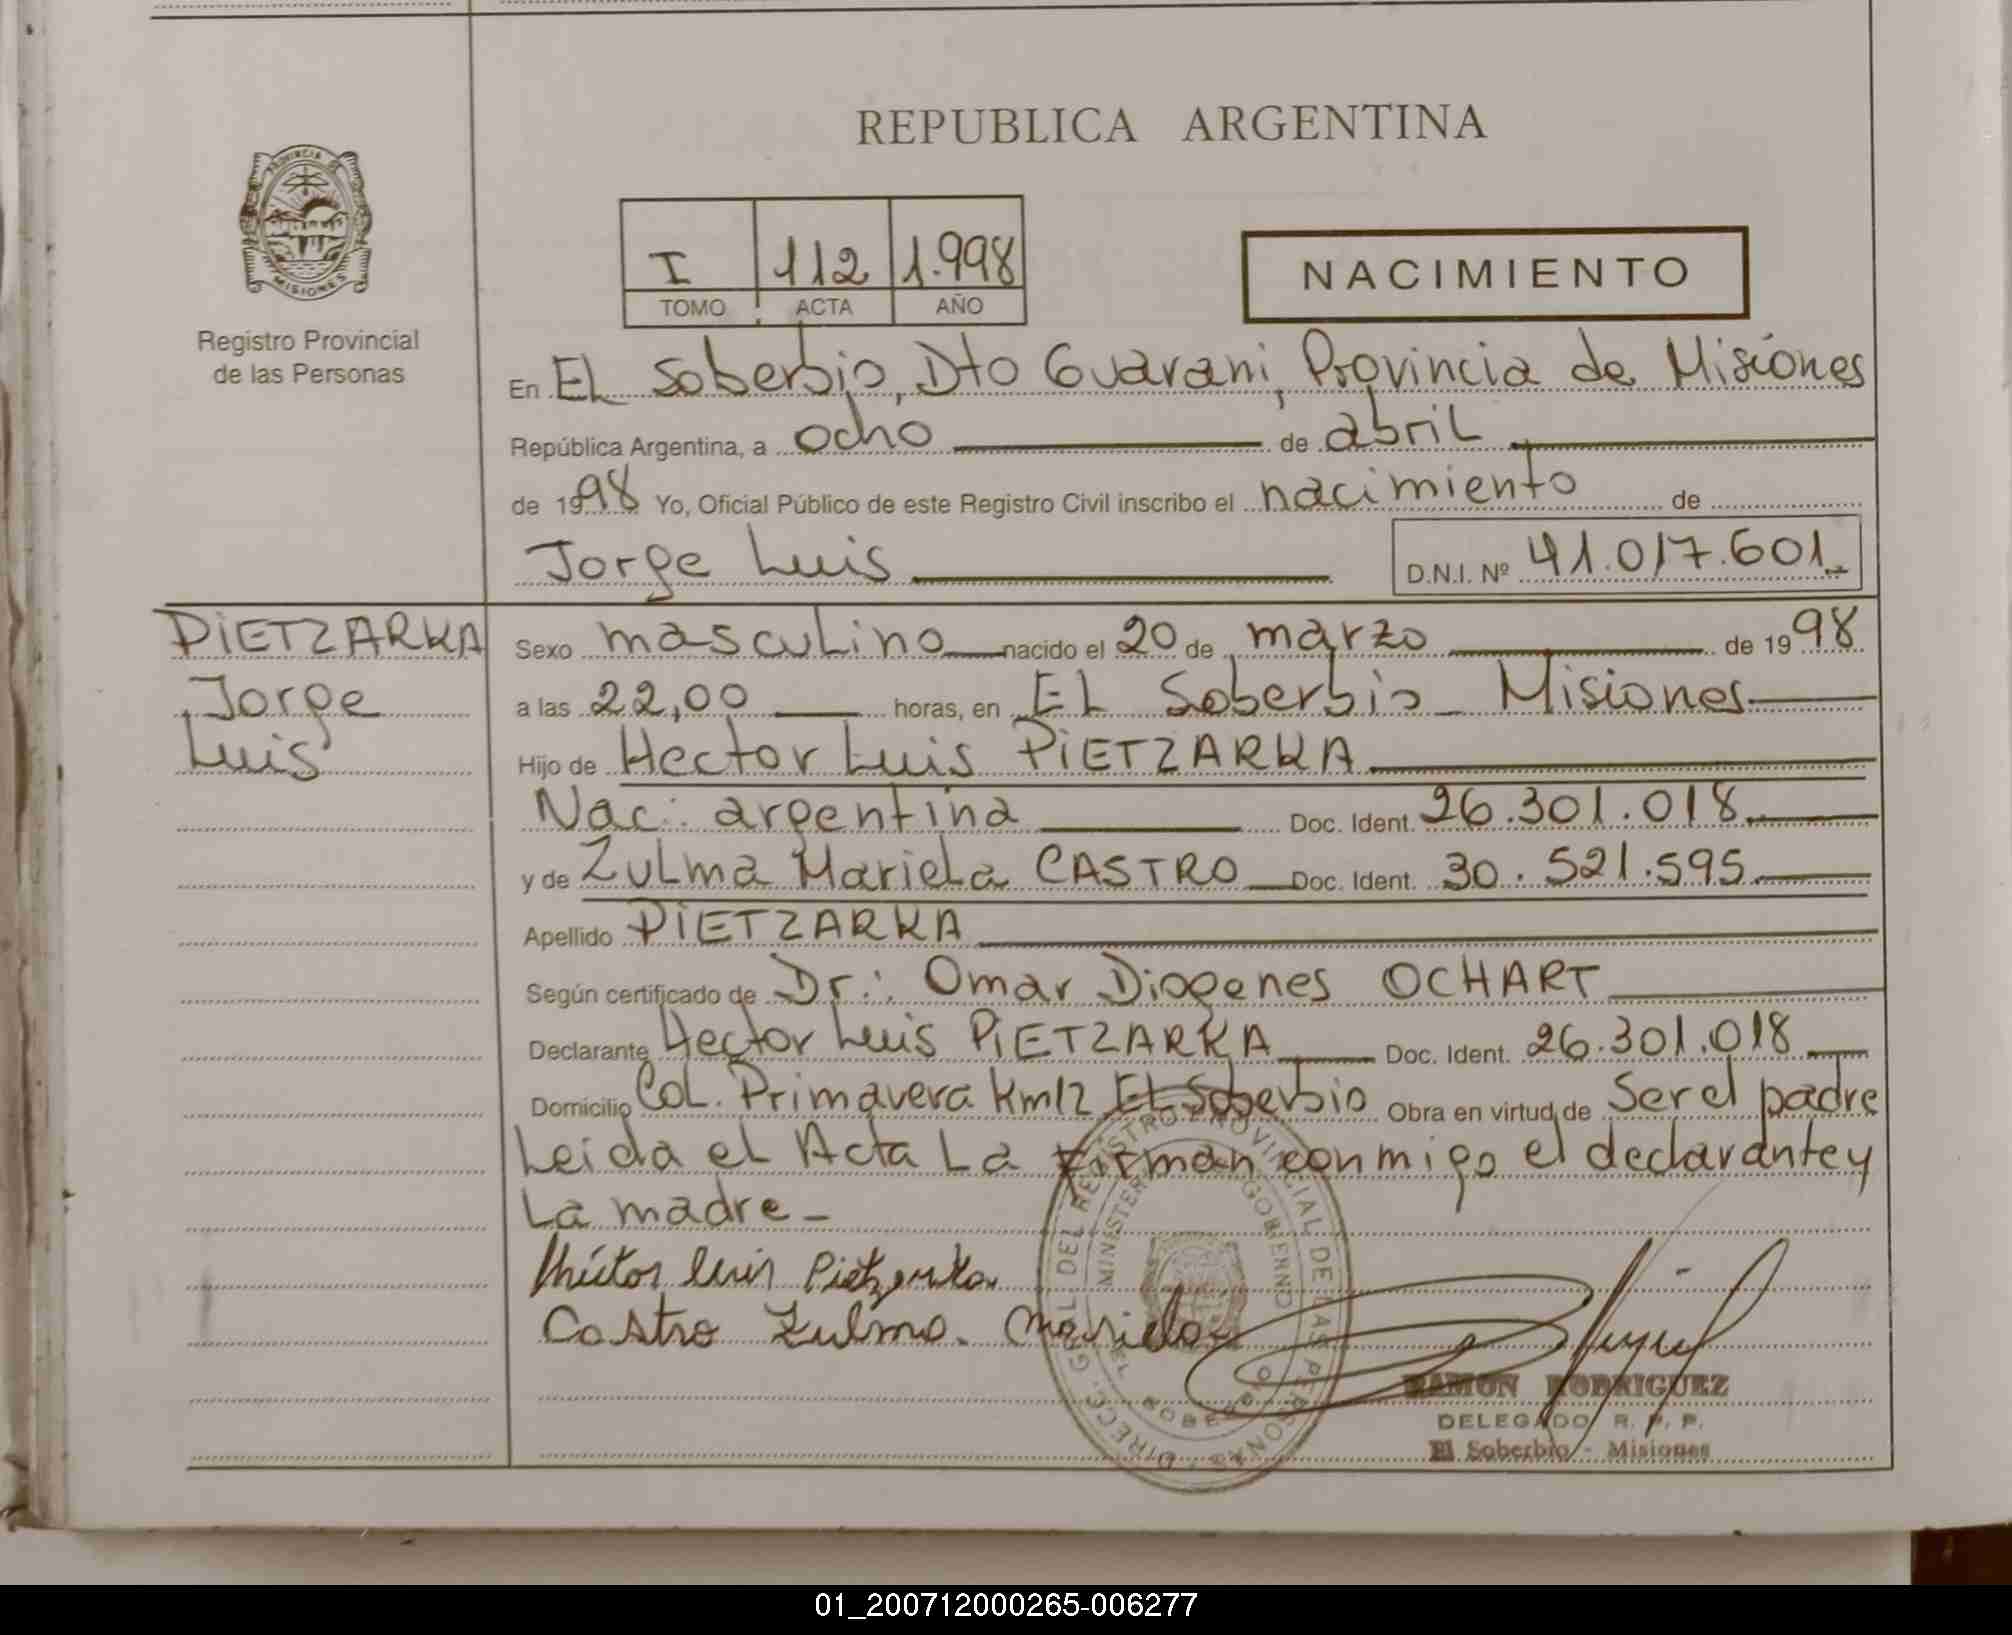 REPUBLICA ARGENTINA
PROVINCIA DE
MISIONES
Registro Provincial
de las Personas
I 112 1.998
TOMO ACTA AÑO
NACIMIENTO
En EL Soberbio, Dto Guarani, Provincia de Misiones
República Argentina, a ocho de abril
de 1998 Yo, Oficial Público de este Registro Civil inscribo el nacimiento de
Jorge Luis D.N.I. Nº 41.017.601
PIETZARKA
Jorge
Luis
Sexo masculino nacido el 20 de marzo de 1998
a las 22,00 horas, en EL Soberbio - Misiones
Hijo de Hector Luis PIETZARKA
Nac: argentina Doc. Ident. 26.301.018
y de Zulma Mariela CASTRO Doc. Ident. 30.521.595
Apellido PIETZARKA
Según certificado de Dr: Omar Diogenes OCHART
Declarante Hector Luis PIETZARKA Doc. Ident. 26.301.018
Domicilio Col. Primavera Km12 El Soberbio Obra en virtud de Ser el padre
Leida el Acta La firman conmigo el declarante y
La madre -
Héctor Luis Pietzarka
Castro Zulma Mariela
DIRECC. GRAL DEL REGISTRO PROVINCIAL DE LAS PERSONAS
MINISTERIO GOBIERNO
SOBERBIO
RAMON RODRIGUEZ
DELEGADO R. P. P.
El Soberbio - Misiones
01_200712000265-006277